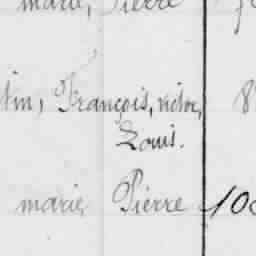 marie, Pierre
tin, François, victor, 8
Louis.
marie Pierre 100